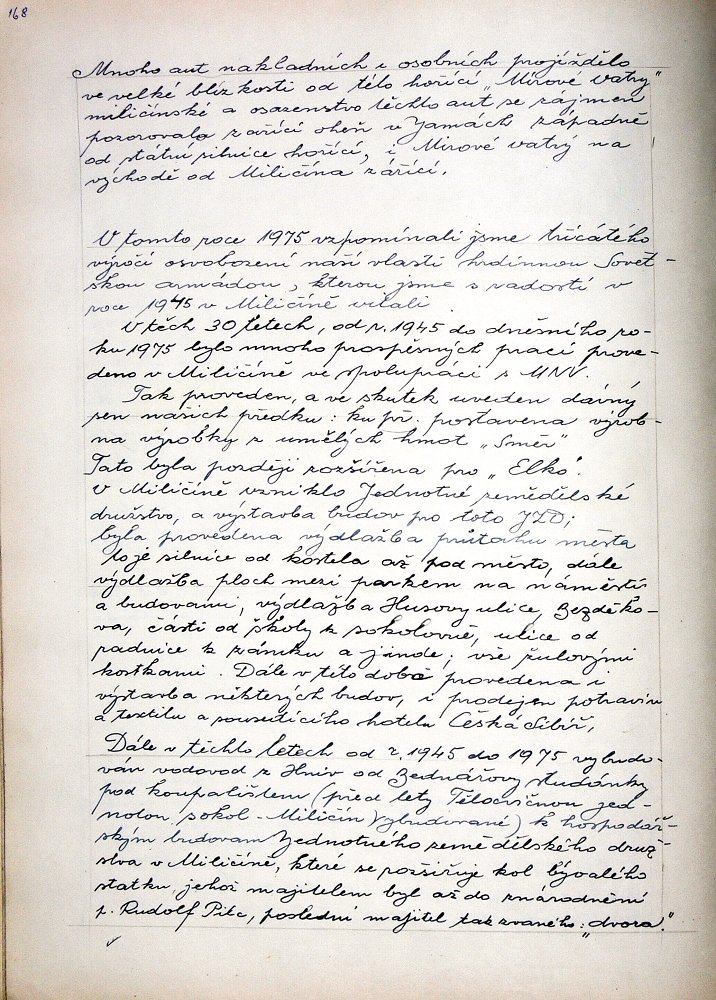 168
Mnoho aut nakladních i osobních projíždělo
ve velké blízkosti od této hořící „Mírové vatry"
miličínské a osazenstvo těchto aut se zájmem
pozorovalo zařící oheň v Jamách západně
od státní silnice hořící, i Mírové vatry na
východě od Miličína zářící.
V tomto roce 1975 vzpomínali jsme třicátého
výročí osvobození naší vlasti hrdinnou Sovět-
skou armádou, kterou jsme s radostí v
roce 1945 v Miličíně vítali.
V těch 30 letech, od r. 1945 do dnešního ro-
ku 1975 bylo mnoho prospěšných prací prove-
deno v Miličíně ve spolupráci s MNV.
Tak proveden, a ve skutek uveden dávný
sen našich předku: ku př. postavena výrob-
na výrobky z umělých hmot „Směr"
Tato byla později rozšířena pro „Elko".
V Miličíně vzniklo Jednotné zemědělské
družstvo, a výstavba budov pro toto JZD;
byla provedena výdlažba průtahu města
to je silnice od kostela až pod město, dále
výdlažba ploch mezi parkem na náměstí
a budovami, výdlažba Husovy ulice, Bezděko-
va, části od školy k sokolovně, ulice od
radnice k zámku a jinde; vše žulovými
kostkami. Dále v této době provedena i
výstavba některých budov, i prodejen potravin
a textilu a sousedícího hotelu Česká Sibiř,
Dále v těchto letech od r. 1945 do 1975 vybudo-
ván vodovod z Hniv od Bednářovy studánky
pod koupalištem (před lety Tělocvičnou jed-
notou sokol - Miličín vybudované) k hospodář-
ským budovam Jednotného zemědělského druž-
stva v Miličíně, které se rozšiřuje kol bývalého
statku, jehož majitelem byl až do znárodnění
p. Rudolf Pilc, poslední majitel tak zvaného: „dvora."